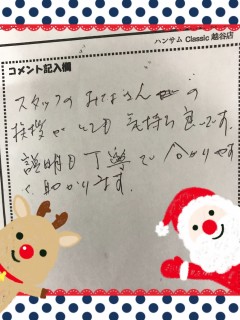 ハンサム Classic 越谷店
コメント記入欄
スタッフのみなさんの
挨拶がとても気持ち良いです。
説明も丁寧で分かりやす
く、助かります。